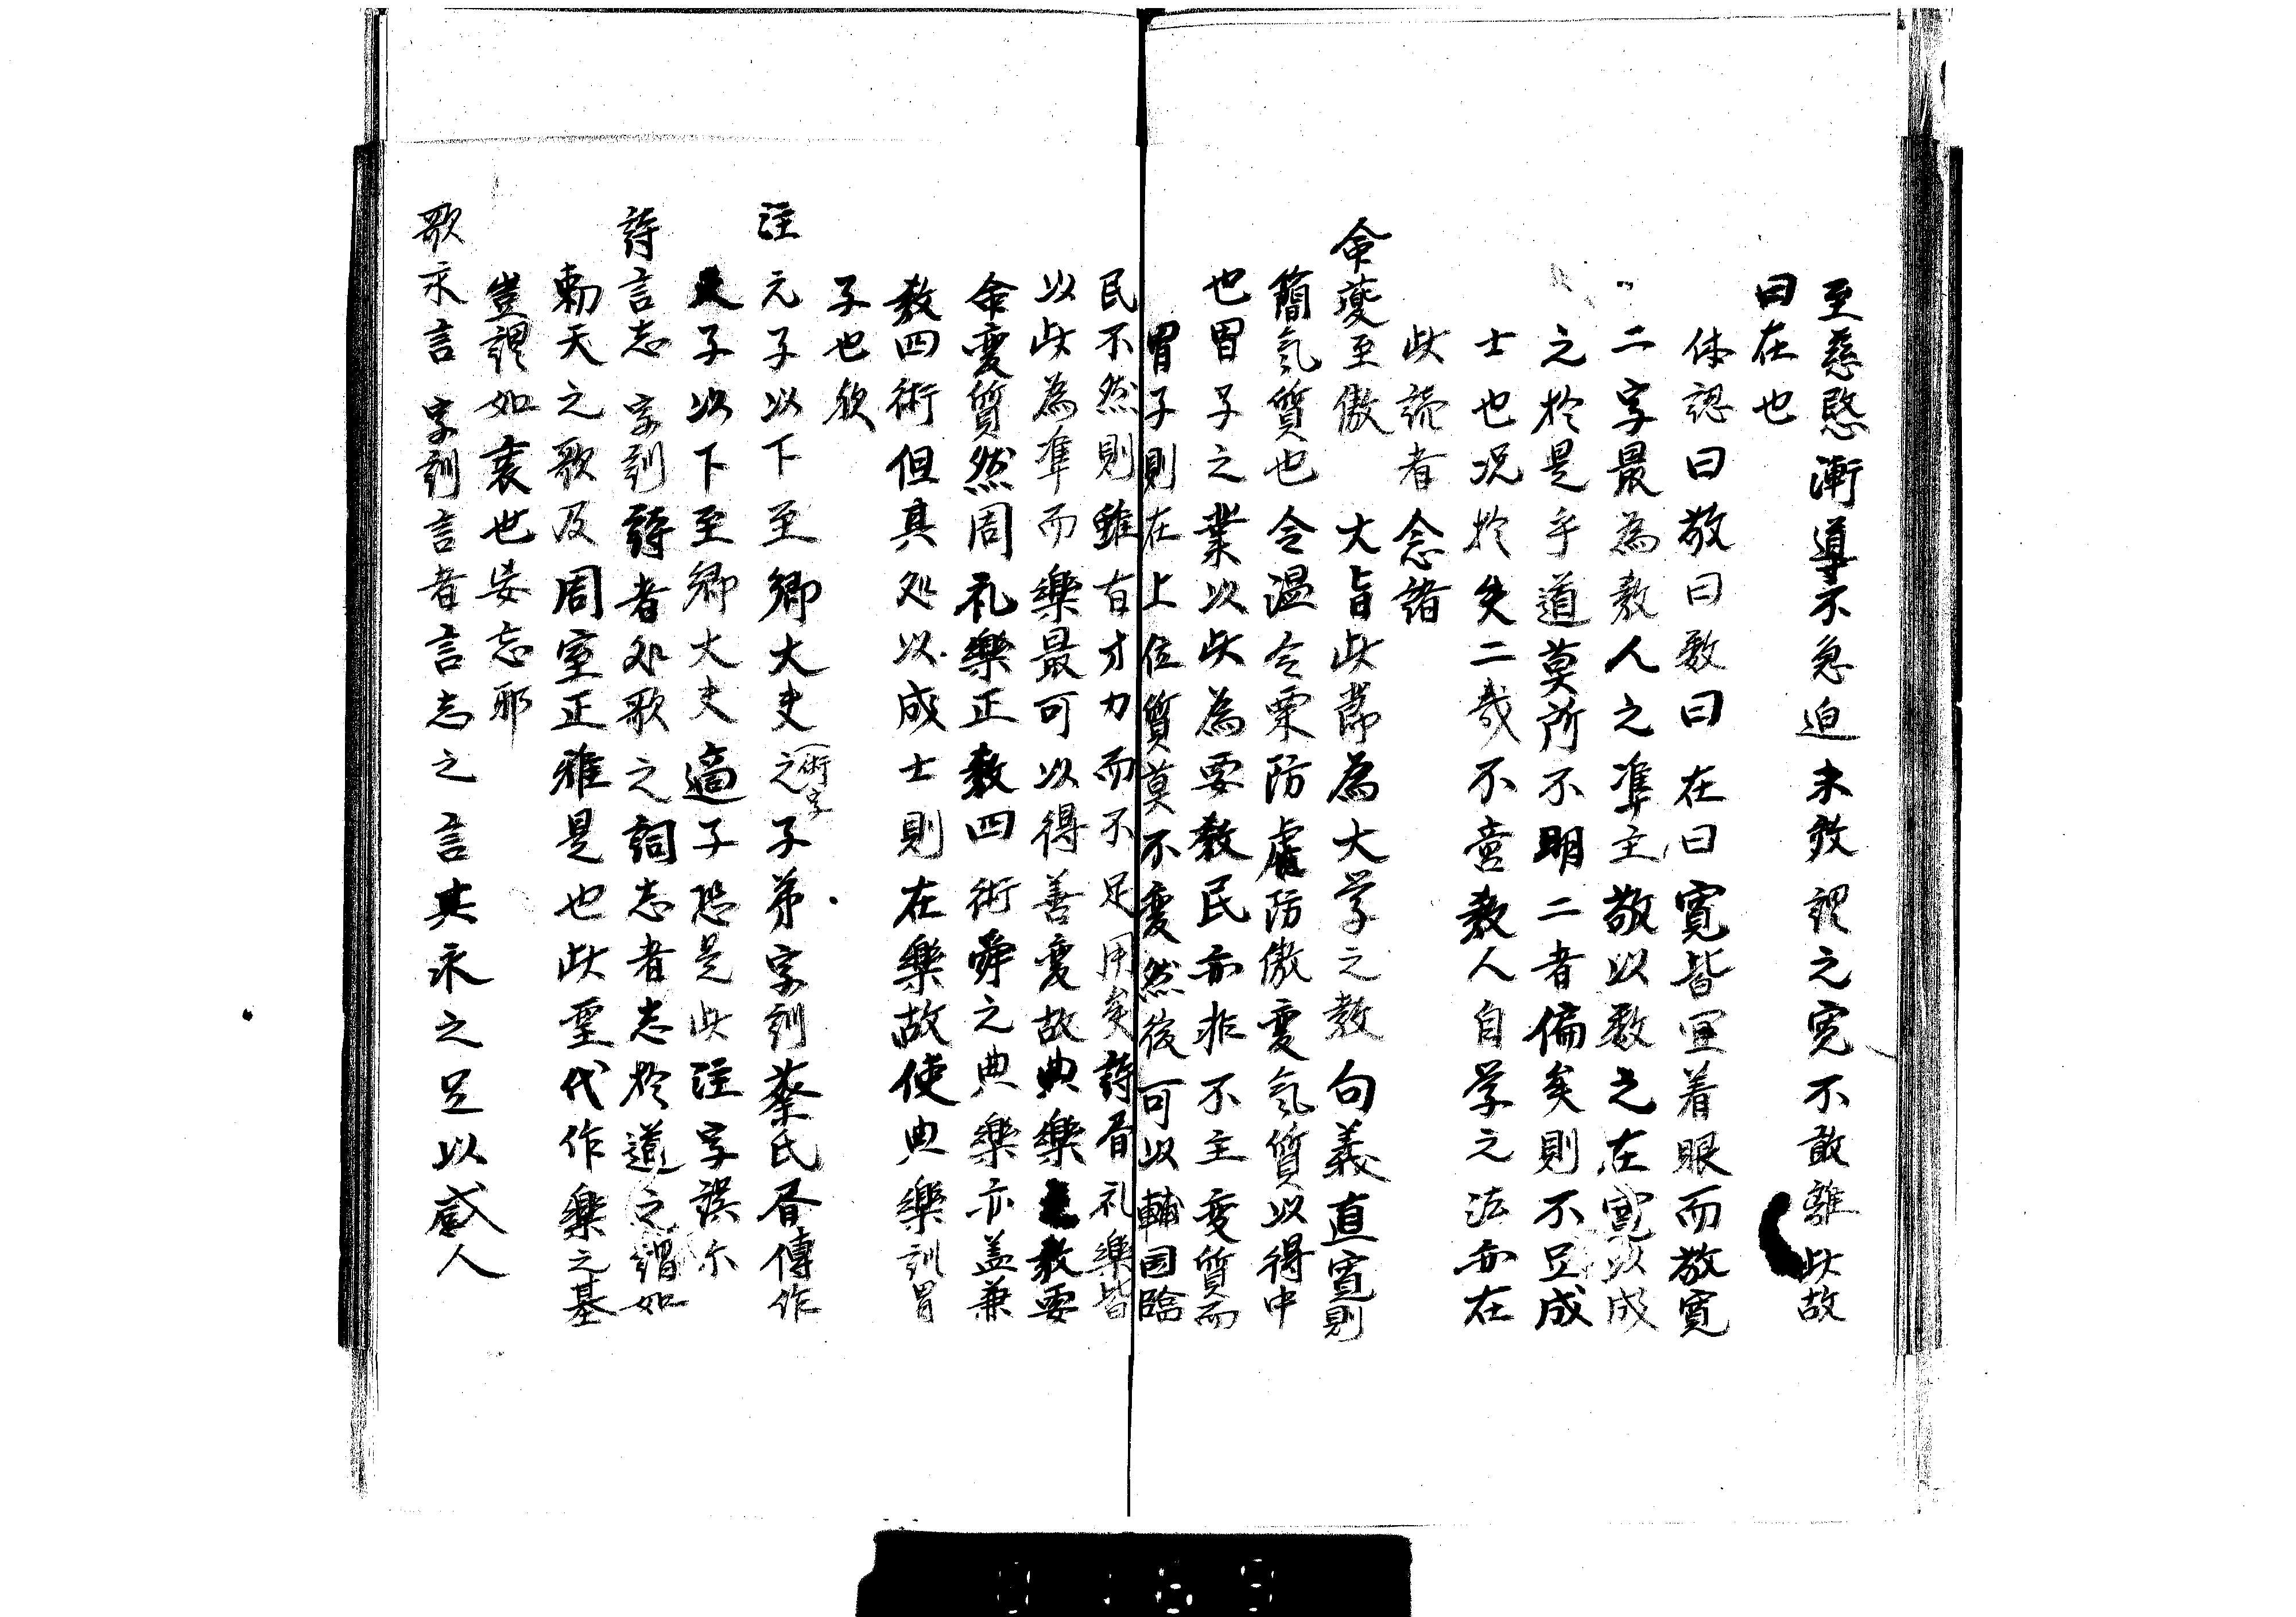 至慈愍漸導不急迫未敢謂之寛不敢離此故
曰在也
体認曰敬曰敷曰在曰寛皆宜着眼而敬寛
二字最為教人之準主敬以敷之在寛以成
之於是乎道莫所不明二者偏矣則不足成
士也况於失二哉不啻教人自学之法亦在
此読者念諸
命夔至傲　大旨此節為大学之教句義直寛則
簡気質也令温令栗防虐防傲変気質以得中
也冑子之業以此為要教民亦非不主変質而
冑子則在上位質莫不変然後可以輔国臨
民不然則雖有才力而不足用矣詩書礼楽皆
以此為準而楽最可以得善変故典楽教要
命変質然周礼楽正教四術舜之典楽亦盖兼
教四術但其処以成士則在楽故使典楽訓冑
子也欤
註元子以下至卿大夫之(衍字)子弟字訓蔡氏書傳作
天子以下至卿大夫適子恐是此註字誤尓
詩言志　字訓詩者処歌之詞志者志於道之謂如
勅天之歌及周室正雅是也此聖代作楽之基
豈謂如衰世妄志耶
歌永言　字訓言者言志之言其永之足以感人